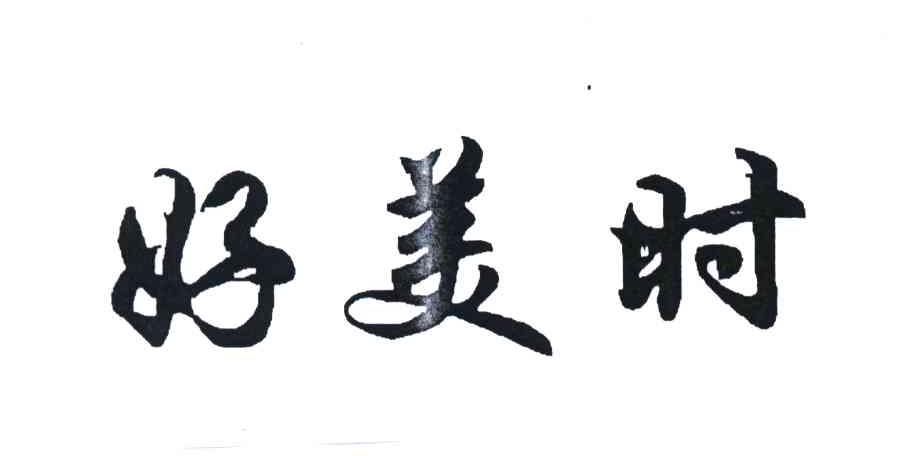 好美时